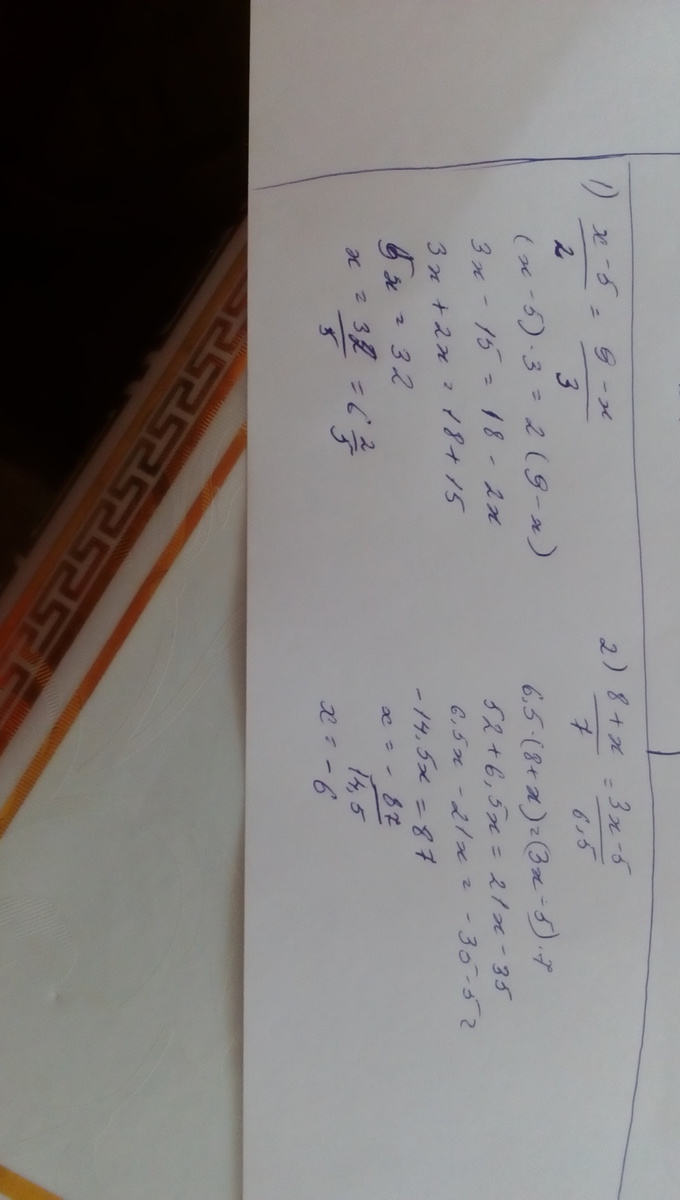 1) x-5/2 = 9-x/3
(x-5)·3 = 2(9-x)
3x - 15 = 18 - 2x
3x + 2x = 18 + 15
5x = 32
x = 32/5 = 6 2/5
2) 8+x/7 = 3x-5/6,5
6,5·(8+x)=(3x-5)·7
52+6,5x = 21x-35
6,5x - 21x = -35-52
-14,5x = 87
x = - 87/14,5
x = -6